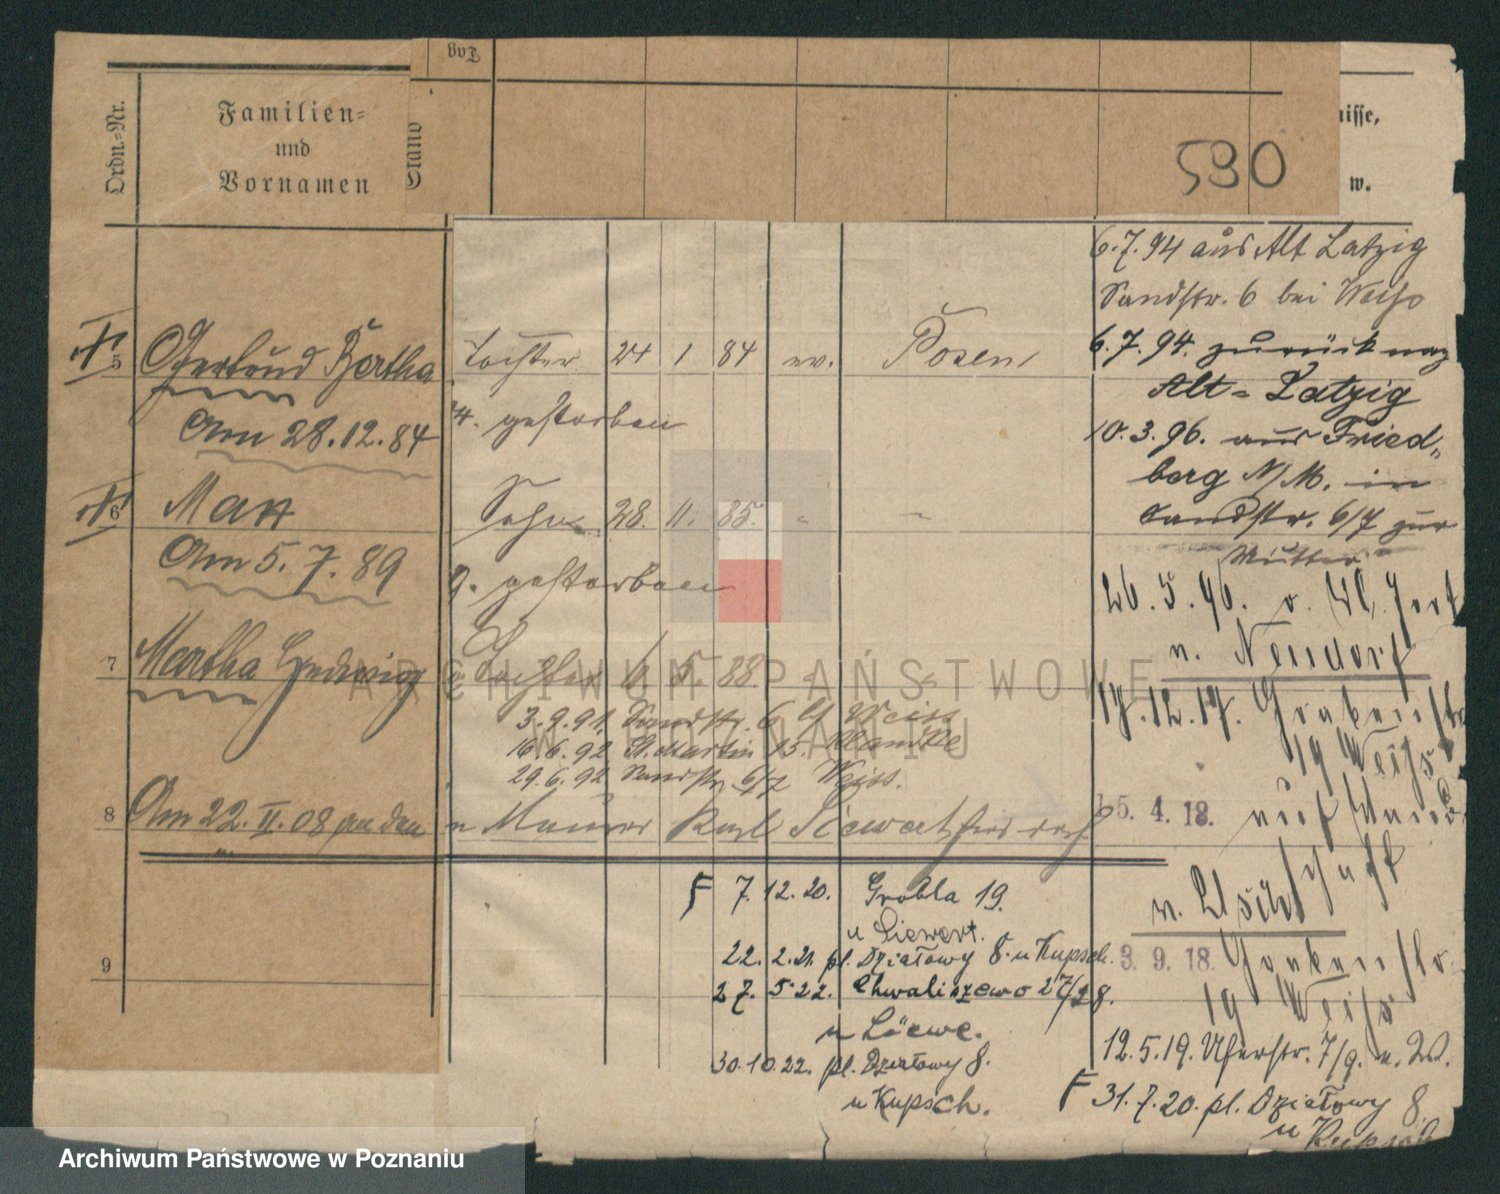 Tag
Ordn.-Nr.
Familien-
und
Vornamen
Stand
nisse,
w.
590
6.7.94 aus Alt Latzig
Sandstr. 6 bei Weiss
5 Gertrud Bertha Tochter 24 1 84 ev. Posen
6.7.94. zurück nach
Alt-Latzig
Am 28.12.84 gestorben
10.3.96. aus Fried-
berg N/M. in
6 Max Sohn 28. 11. 85. " "
Sandstr. 6/7 zur
Mutter
Am 5.7.89 gestorben
26.5.96. v.
n. Neudorf
7 Martha Hedwig Tochter 6 5. 88 " "
ARCHIWUM PAŃSTWOWE
W POZNANIU
3.9.91. Sandstr. 6 b/ Weiss
16.6.92 St. Martin 15.
29.6.92 Sandstr. 6/7 Weiss.
17.12.17. Grabenstr.
19 Weiss
8 Am 22.II.08 an den Maurer Karl Siewert
15.4.18. auf Wander-
schaft
F 7.12.20. Grobla 19.
u Siewert.
22.2.21. pl. Działowy 8. u Kupsch.
3.9.18. Grabenstr.
19 Weiss
9
27.5.22. Chwaliszewo 27/28.
u Löewe.
12.5.19. Uferstr. 7/9. u. W.
30.10.22. pl. Działowy 8.
u Kupsch.
F 31.7.20. pl. Działowy 8.
u Kupsch
Archiwum Państwowe w Poznaniu